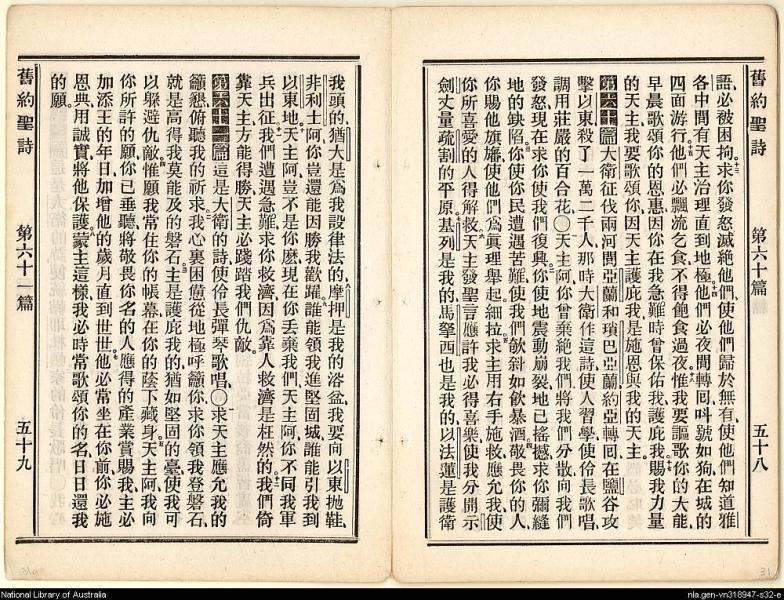 舊約聖詩 第六十篇 五十八
語必被困拘求你發怒滅絕他們使他們歸於無有使他們知道雅
各中間有天主治理直到地極他們必夜間轉回呌號如狗在城的
四面游行他們必飄流乞食不得飽食過夜惟我要謳歌你的大能
早晨歌頌你的恩惠因你在我急難時曾保佑我護庇我賜我力量
的天主我要歌頌你因天主護庇我是施恩與我的天主
第六十篇大衛征伐兩河間亞蘭和瑣巴亞蘭約亞轉回在鹽谷攻
擊以東殺了一萬二千人那時大衛作這詩使人習學使伶長歌唱
調用莊嚴的百合花〇天主阿你曾棄絕我們將我們分散向我們
發怒現在求你使我們復興你使地震動崩裂地已搖撼求你彌縫
地的缺陷你使你民遭遇苦難使我們飲斝如飲暴酒敬畏你的人
你賜他旗旛使他們爲眞理舉起細拉求主用右手施救應允我使
你所喜愛的人得解救天主發聖言應許我必得喜樂使我分開示
劍丈量疏割的平原基列是我的馬拏西也是我的以法蓮是護衛
我頭的猶大是爲我設律法的摩押是我的浴盆我要向以東抛鞋
非利士阿你豈還能因勝我歡躍誰能領我進堅固城誰能引我到
以東地天主阿豈不是你麽現在你丟棄我們天主阿你不同我軍
兵出征我們遭遇急難求你救濟因爲靠人救濟是枉然的我們倚
靠天主方能得勝天主必踐踏我們仇敵
第六十一篇這是大衛的詩使伶長彈琴歌唱〇求天主應允我的
籲懇俯聽我的祈求我心裏困憊從地極呼籲你求你領我登磐石
就是高得我莫能及的磐石主是護庇我的猶如堅固的臺使我可
以躲避仇敵惟願我常住在你的帳幕在你的蔭下藏身天主阿我向
你所許的願你已垂聽將敬畏你名的人應得的產業賞賜我主必
加添王的年日加增他的歲月直到世世他必常坐在你前你必施
恩典用誠實將他保護蒙主這樣我必時常歌頌你的名日日還我
的願
舊約聖詩 第六十一篇 五十九
National Library of Australia
nla.gen-vn318947-s32-e